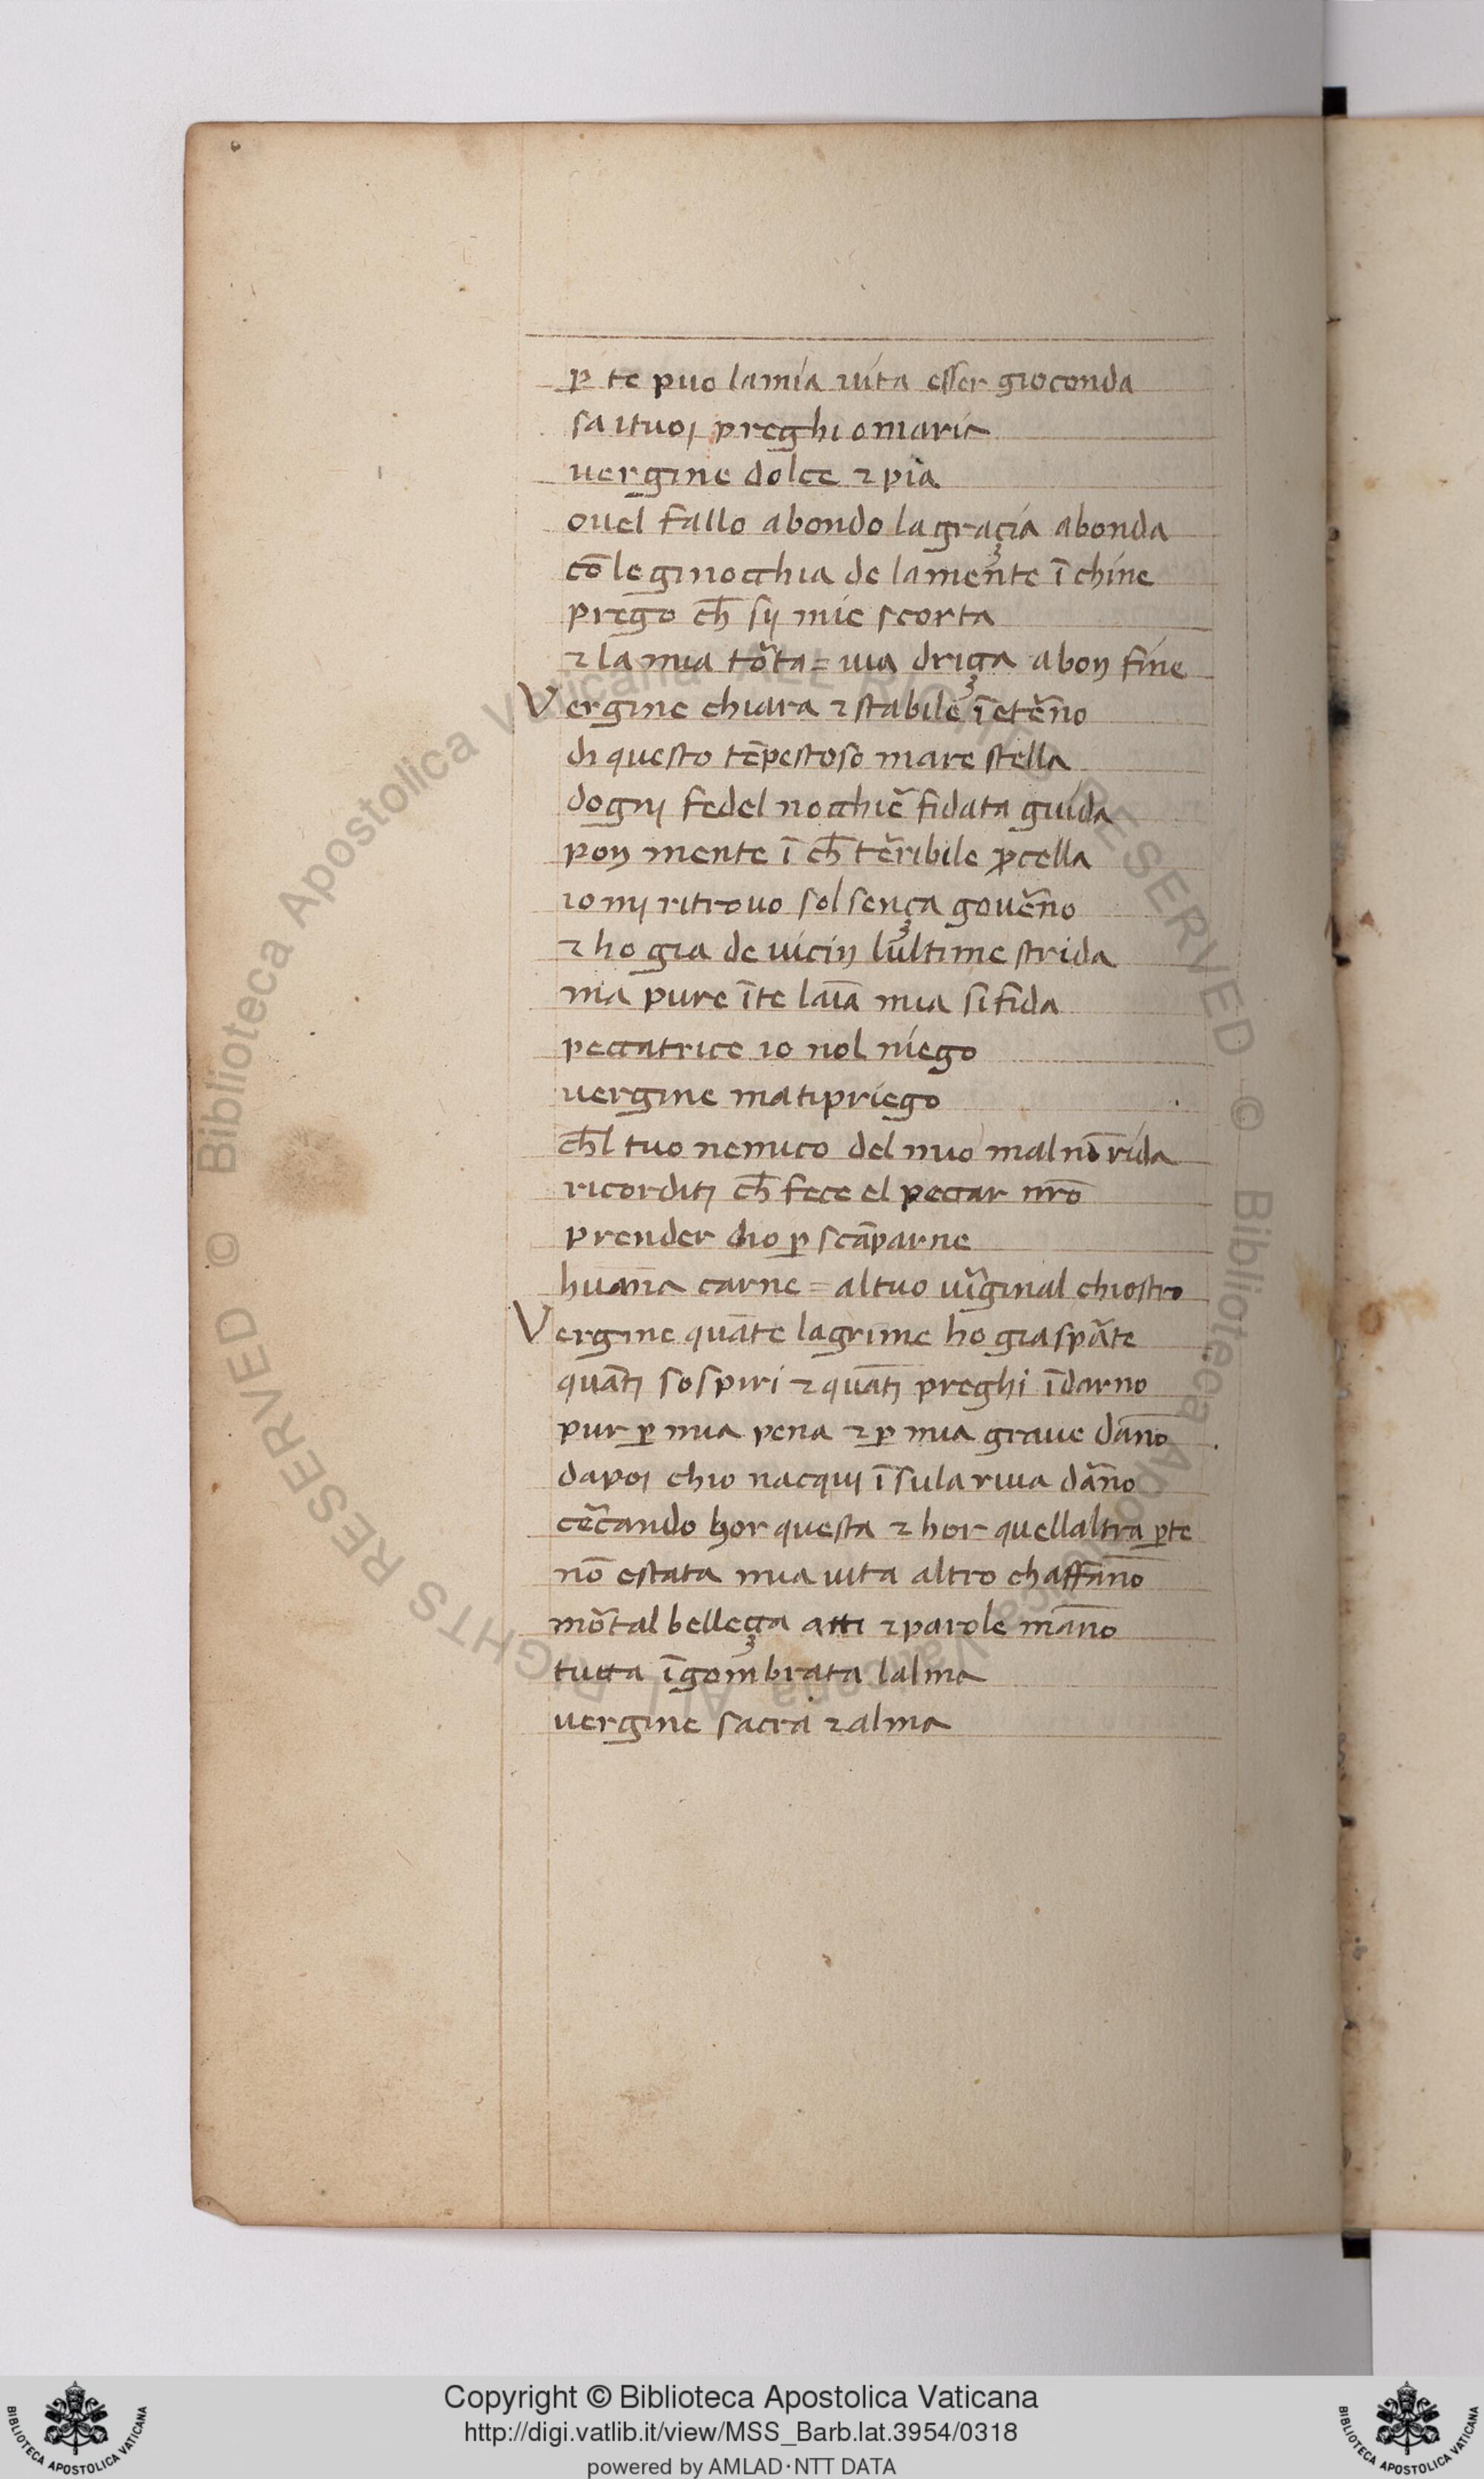 p̱ te puo lamia uita esser gioconda
sa ituoj preghi o maria
uergine dolce ⁊ pia
ouel fallo abondo la graçia abonda
cō le ginocchia de lamente ī chine
prego ch̄ sij mie scorta
⁊ la mia tôta = uia driça abon fine
Vergine chiara ⁊ stabile ī etêno
di questo tēpestoso mare stella
dognj fedel nocchiê fidata guida
pon mente ī ch̄ têribile ꝓcella
io mj ritrouo sol sença gouêno
⁊ ho gia de uicin lultime strida
ma pure īte laīa mia si fida
peccatrice io nol niego
uergine ma tipriego
ch̄l tuo nemico del mio mal nō rida
ricorditj ch̄ fece el peccar nr̄o
prender dio p̱ scāparne
huana carne = altuo uîginal chiostro
Vergine quāte lagrime ho gia spâte
quātj sospiri ⁊ quātj preghi īdarno
pur p̱ mia pena ⁊ p̱ mia graue dan̄o
dapoj chio nacqui ī sula riua dâno
cêcando hor questa ⁊ hor quellaltra p̱te
nō estata mia uita altro chaffan̄o
môtal belleça atti ⁊ parole man̄o
tutta īgombrata lalma
uergine sacra ⁊ alma
Copyright © Biblioteca Apostolica Vaticana
http://digi.vatlib.it/view/MSS_Barb.lat.3954/0318
powered by AMLAD·NTT DATA
BIBLIOTECA APOSTOLICA VATICANA
BIBLIOTECA APOSTOLICA VATICANA
© Biblioteca Apostolica Vaticana ALL RIGHTS RESERVED © Biblioteca Apostolica Vaticana ALL RIGHTS RESERVED